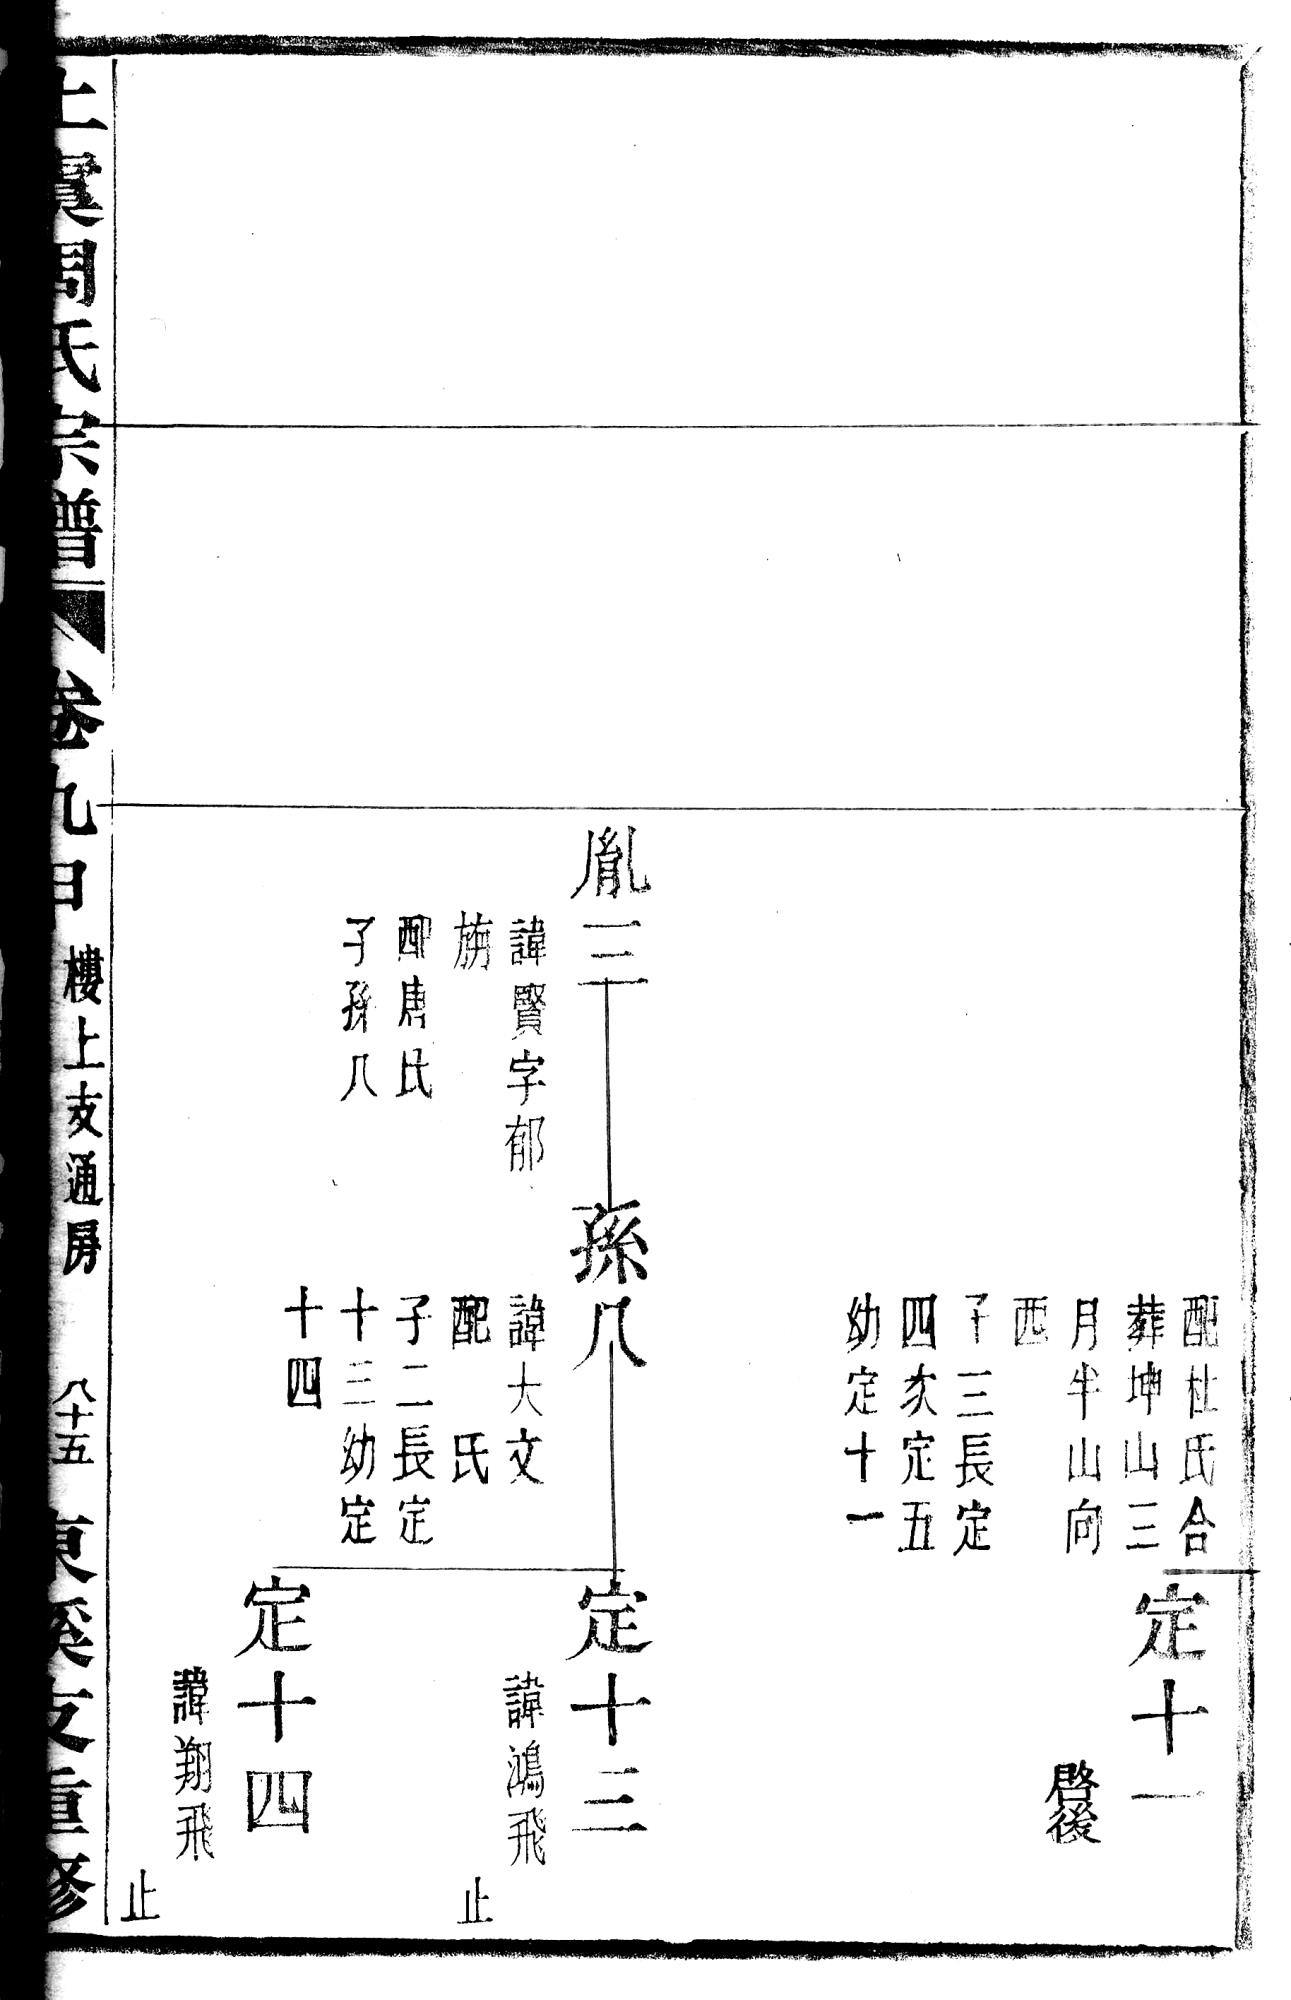 配杜氏合
葬坤山三
月半山向
西
子三長定
四次定五
幼定十一
定十一
啓後
胤三
諱賢字郁
旃
配唐氏
子孫八
孫八
諱大文
配 氏
子二長定
十三幼定
十四
定十三
諱鴻飛
止
定十四
諱翔飛
止
上虞周氏宗譜 卷九 樓上支通房 八十五 東溪支重修